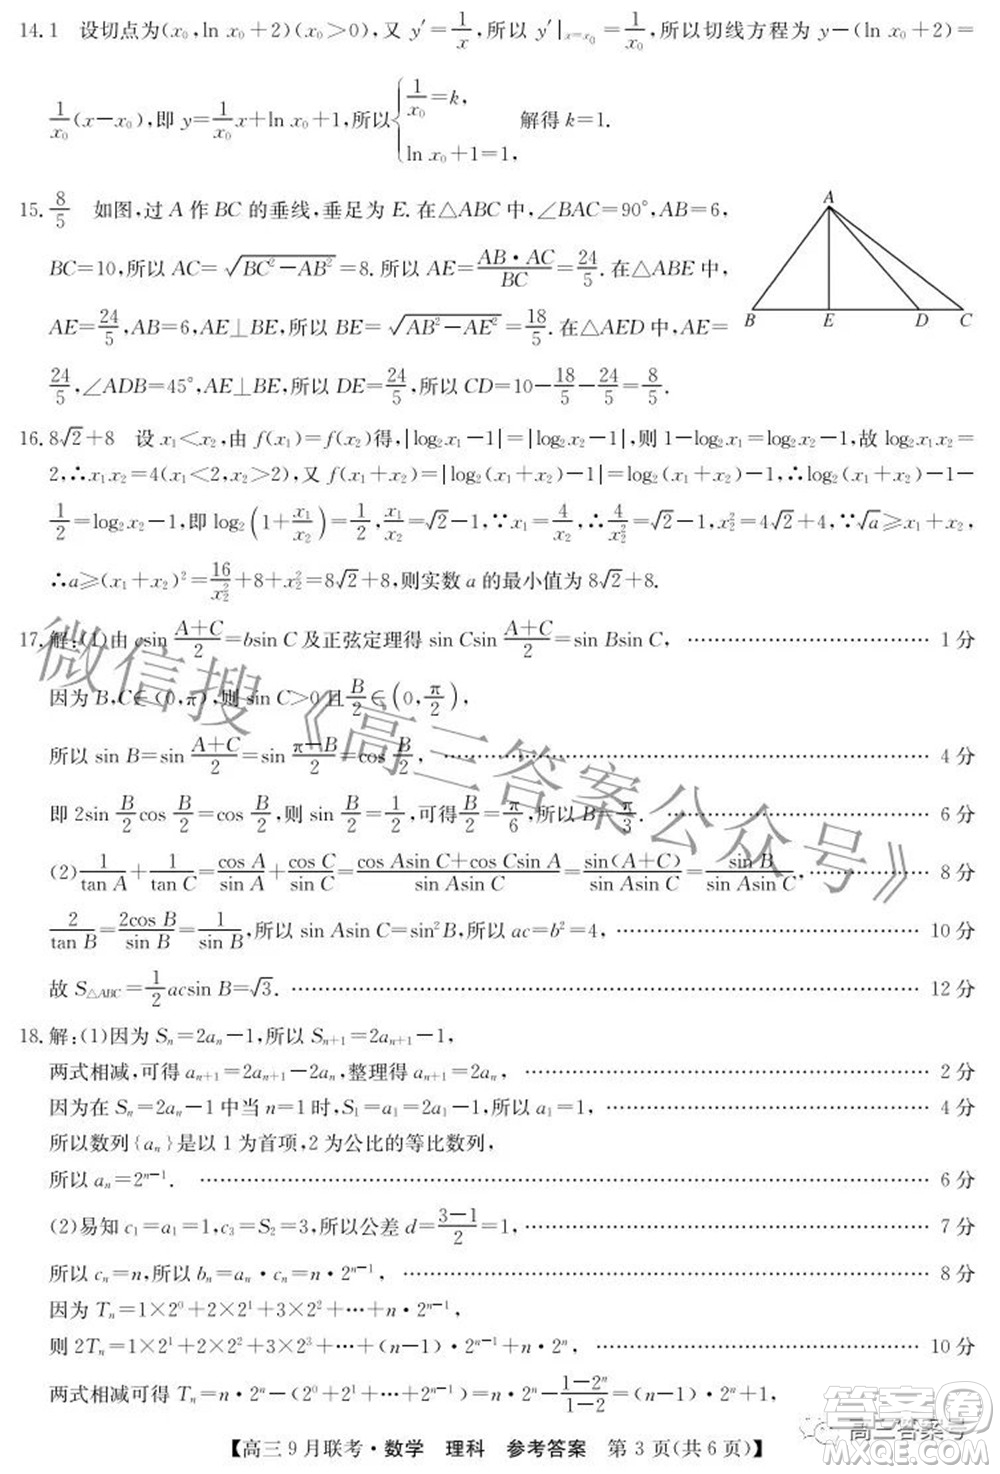 14.1 设切点为(x₀,ln x₀+2)(x₀>0),又 y′=1/x,所以 y′|ₓ₌ₓ₀=1/x₀,所以切线方程为 y-(ln x₀+2)=
1/x₀(x-x₀),即 y=1/x₀x+ln x₀+1,所以{1/x₀=k, ln x₀+1=1, 解得 k=1.
15.8/5 如图,过 A 作 BC 的垂线,垂足为 E.在△ABC 中,∠BAC=90°,AB=6,
BC=10,所以 AC=√(BC²-AB²)=8.所以 AE=AB·AC/BC=24/5.在△ABE 中,
AE=24/5,AB=6,AE⊥BE,所以 BE=√(AB²-AE²)=18/5.在△AED 中,AE=
24/5,∠ADB=45°,AE⊥BE,所以 DE=24/5,所以 CD=10-18/5-24/5=8/5.
A
B E D C
16.8√2+8 设 x₁<x₂,由 f(x₁)=f(x₂)得,|log₂x₁-1|=|log₂x₂-1|,则 1-log₂x₁=log₂x₂-1,故 log₂x₁x₂=
2,∴x₁x₂=4(x₁<2,x₂>2),又 f(x₁+x₂)=|log₂(x₁+x₂)-1|=log₂(x₁+x₂)-1,∴log₂(x₁+x₂)-1-
1/2=log₂x₂-1,即 log₂(1+x₁/x₂)=1/2,x₁/x₂=√2-1,∵x₁=4/x₂,∴4/x₂²=√2-1,x₂²=4√2+4,∵√a≥x₁+x₂,
∴a≥(x₁+x₂)²=16/x₂²+8+x₂²=8√2+8,则实数 a 的最小值为 8√2+8.
17.解:(1)由 csin (A+C)/2=bsin C 及正弦定理得 sin Csin (A+C)/2=sin Bsin C, ………… 1 分
因为 B,C∈(0,π),则 sin C>0 且B/2∈(0,π/2),
所以 sin B=sin (A+C)/2=sin (π-B)/2=cos B/2, ………… 4 分
即 2sin B/2cos B/2=cos B/2,则 sin B/2=1/2,可得B/2=π/6,所以 B=π/3. ………… 6 分
(2)1/tan A+1/tan C=cos A/sin A+cos C/sin C=(cos Asin C+cos Csin A)/(sin Asin C)=sin(A+C)/(sin Asin C)=sin B/(sin Asin C), ………… 8 分
2/tan B=2cos B/sin B=1/sin B,所以 sin Asin C=sin²B,所以 ac=b²=4, ………… 10 分
故 S△ABC=1/2acsin B=√3. ………… 12 分
18.解:(1)因为 Sₙ=2aₙ-1,所以 Sₙ₊₁=2aₙ₊₁-1,
两式相减,可得 aₙ₊₁=2aₙ₊₁-2aₙ,整理得 aₙ₊₁=2aₙ, ………… 2 分
因为在 Sₙ=2aₙ-1 中当 n=1 时,S₁=a₁=2a₁-1,所以 a₁=1, ………… 4 分
所以数列{aₙ}是以 1 为首项,2 为公比的等比数列,
所以 aₙ=2ⁿ⁻¹. ………… 6 分
(2)易知 c₁=a₁=1,c₃=S₂=3,所以公差 d=(3-1)/2=1, ………… 7 分
所以 cₙ=n,所以 bₙ=aₙ·cₙ=n·2ⁿ⁻¹, ………… 8 分
因为 Tₙ=1×2⁰+2×2¹+3×2²+…+n·2ⁿ⁻¹,
则 2Tₙ=1×2¹+2×2²+3×2³+…+(n-1)·2ⁿ⁻¹+n·2ⁿ, ………… 10 分
两式相减可得 Tₙ=n·2ⁿ-(1-2ⁿ)/(1-2)=(n-1)·2ⁿ+1,
【高三 9 月联考·数学 理科 参考答案 第 3 页(共 6 页)】
微信搜《高三答案公众号》
答案圈
高三答案号